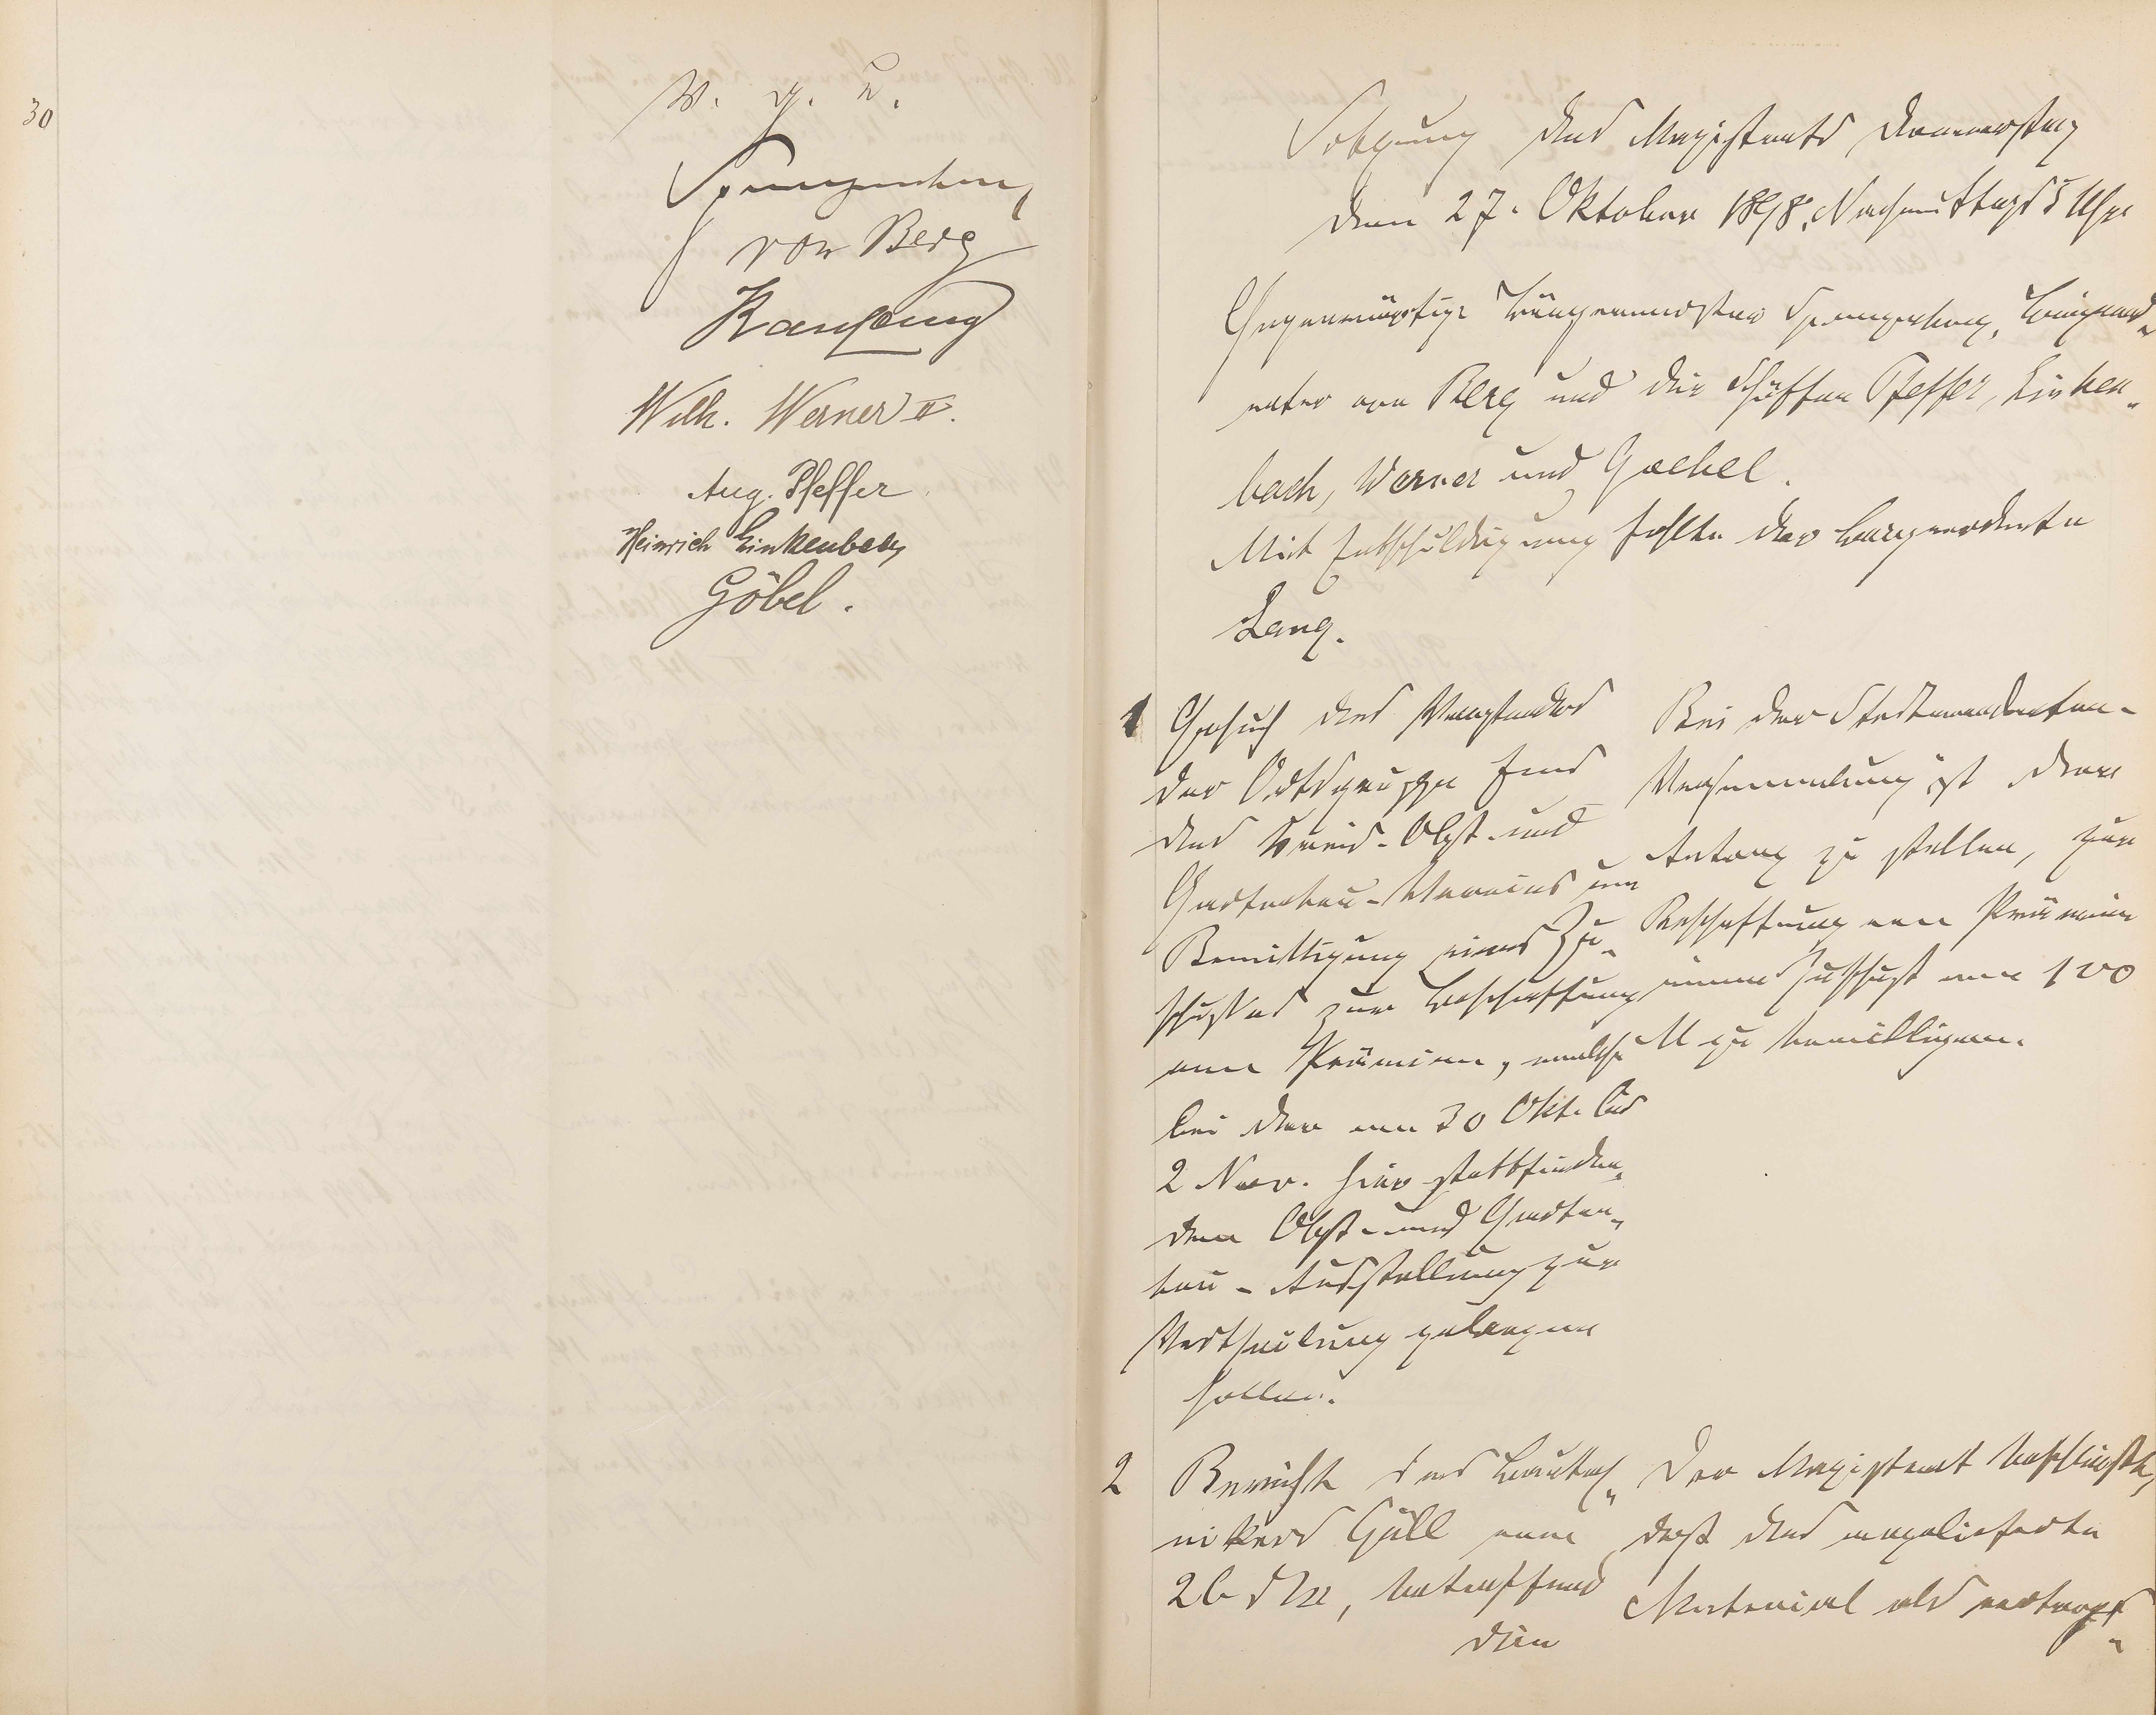 30
v. g. u.
Spangenberg
von Berg
Wilh. Werner II.
Aug. Pfeffer
Heinrich Linkenbach
Göbel.
Sitzung des Magistrats Donnerstag
den 27. Oktober 1898, Nachmittags 5 Uhr
Gegenwärtig: Bürgermeister Spangenberg, Beigeord„
neter von Berg und die Schöffen Pfeffer, Linken„
bach, Werner und Goebel.
Mit Entschuldigung fehlte der Beigeordnete
Lang.
1 Gesuch des Vorstandes
der Ortsgruppe Ems
des Kreis-Obst- und
Gartenbau-Vereins um
Bewilligung eines Zu„
schusses zur Beschaffung
von Prämien, welche
bei der am 30 Okt. bis
2 Nov. hier stattfinden„
den Obst- und Garten„
bau-Ausstellung zur
Vertheilung gelangen
sollen.
Bei der Stadtverordneten-
Versammlung ist der
Antrag zu stellen, zur
Beschaffung von Prämien
einen Zuschuß von 100
M zu bewilligen.
2 Bericht des Bautech„
nikers Güll vom
26 d Mts, betreffend
die
Der Magistrat beschließt,
daß das angelieferte
Material als vertrags„